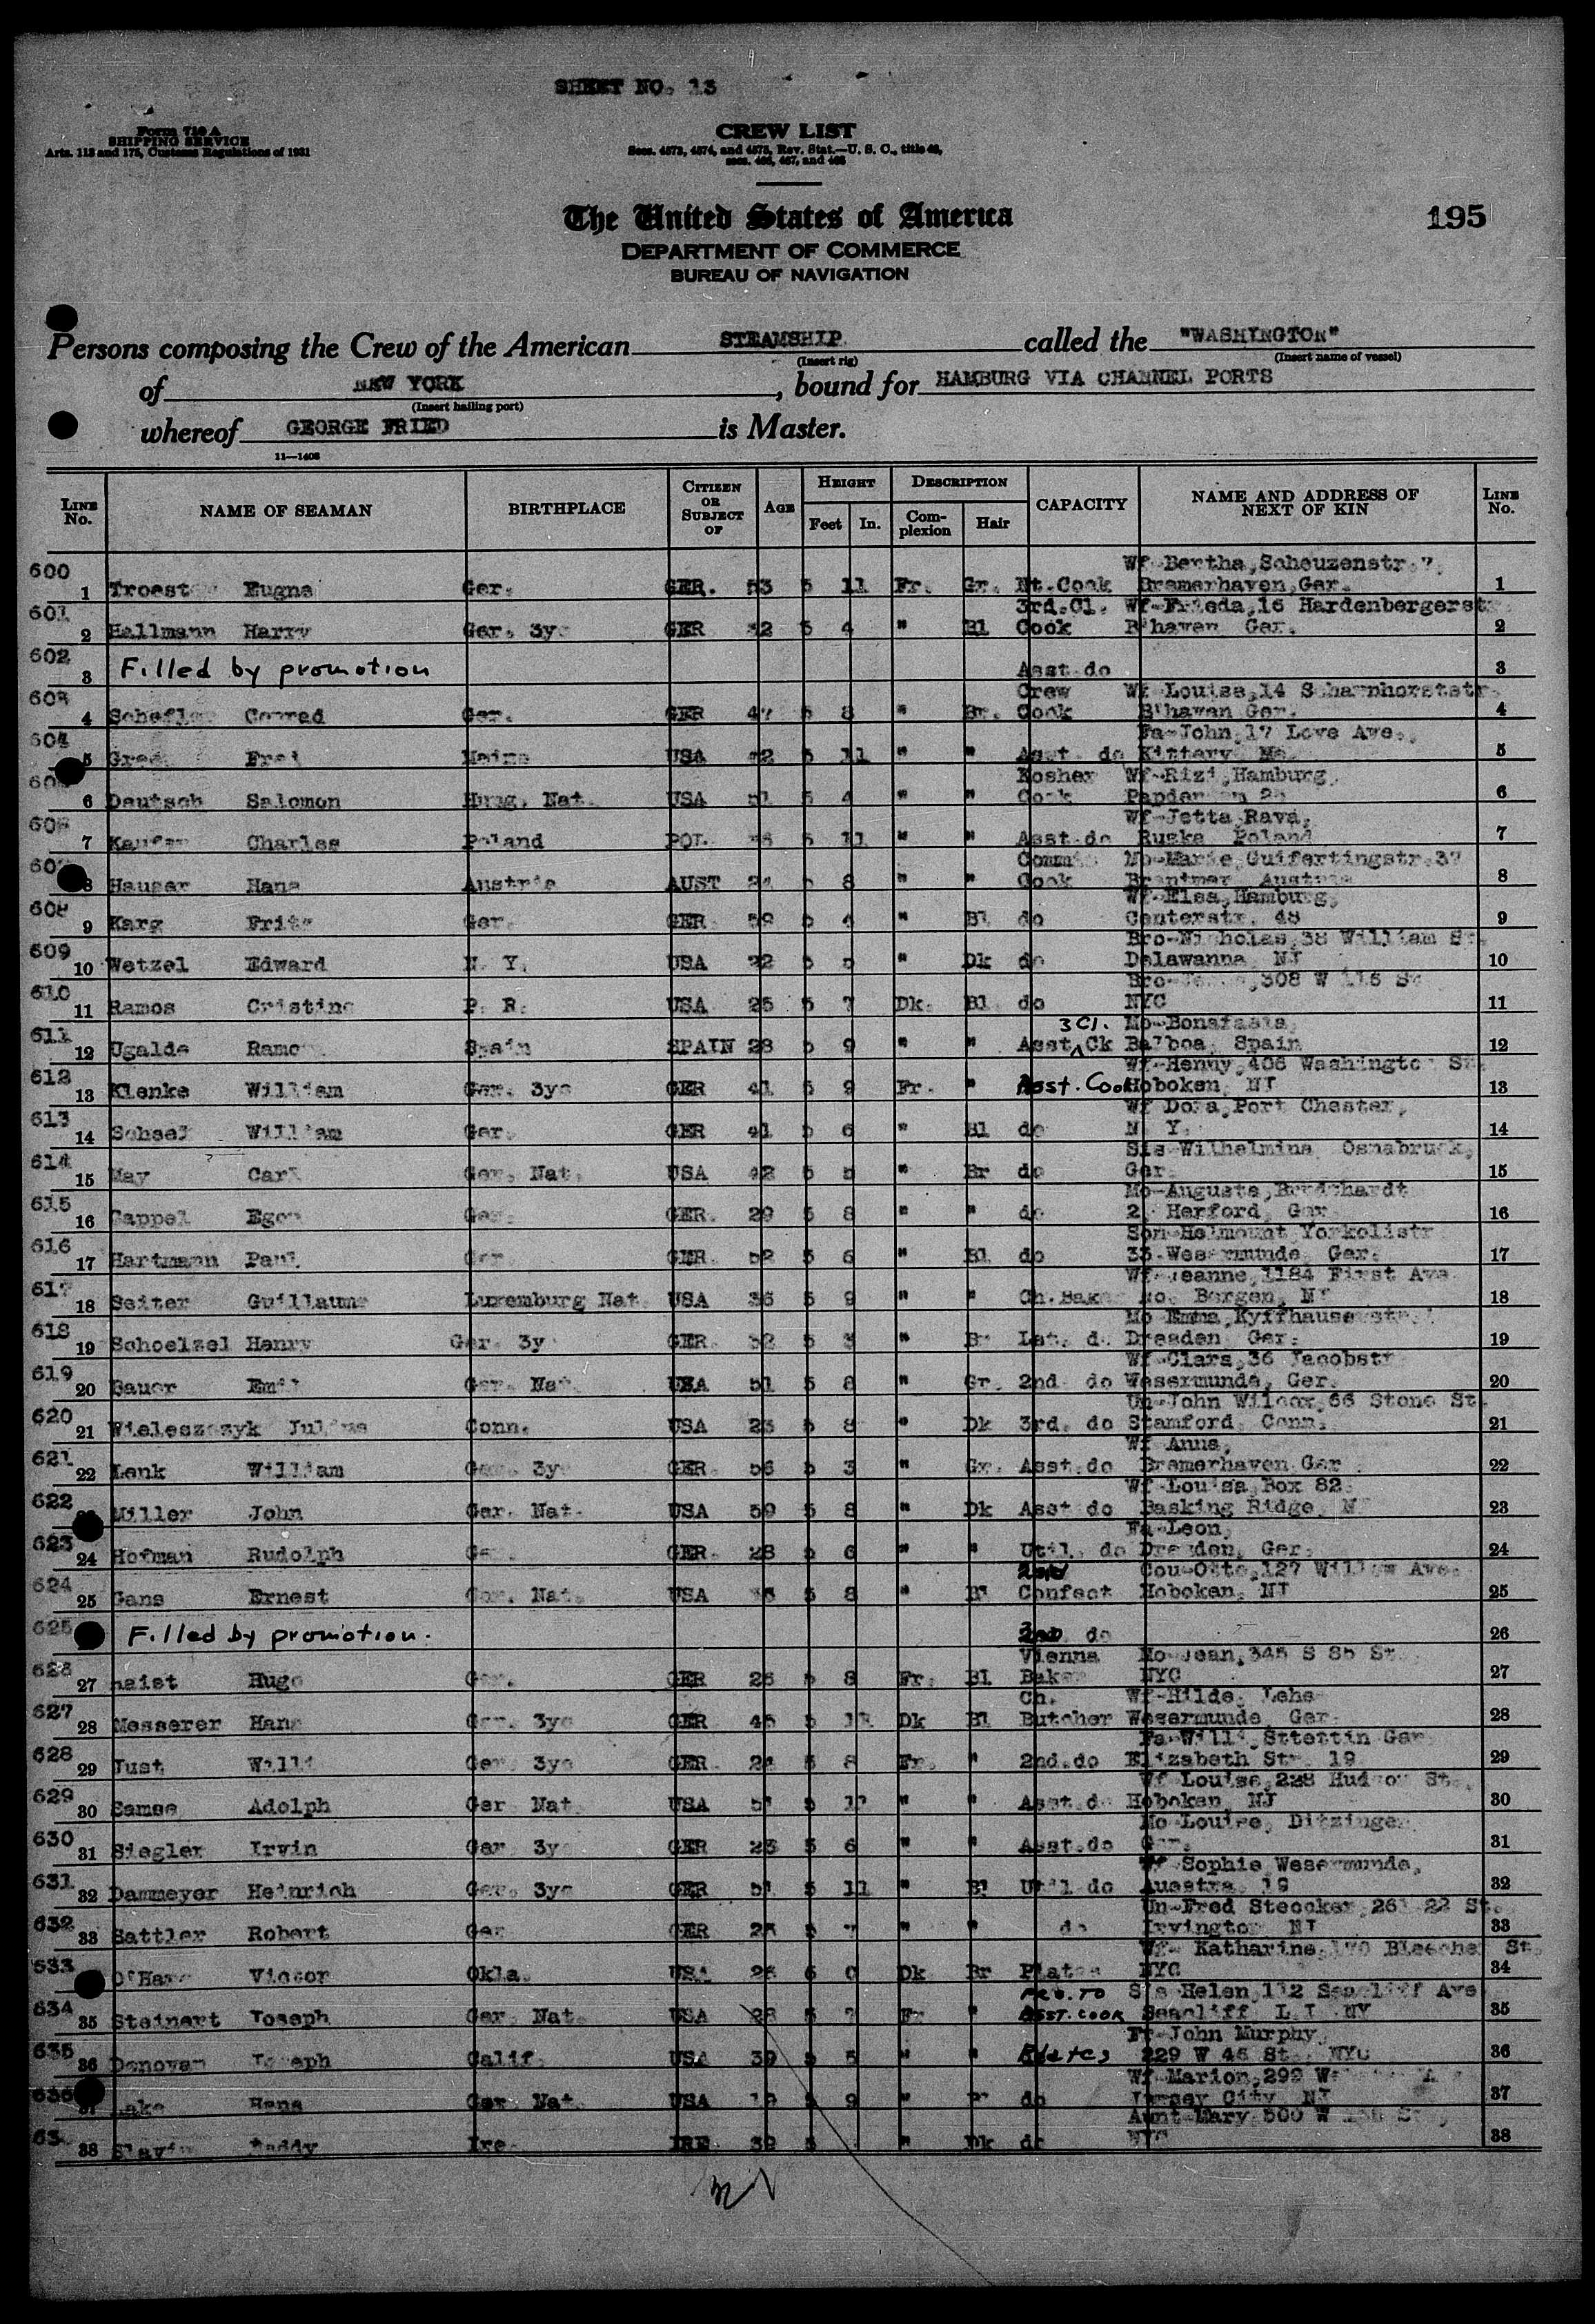 SHEET NO. 13
Form 710 A
SHIPPING SERVICE
Arts. 113 and 175, Customs Regulations of 1931
CREW LIST
Secs. 4573, 4574, and 4575, Rev. Stat.—U. S. C., title 46,
secs. 466, 467, and 468
The United States of America
195
DEPARTMENT OF COMMERCE
BUREAU OF NAVIGATION
Persons composing the Crew of the American STEAMSHIP called the "WASHINGTON"
(Insert rig) (Insert name of vessel)
of NEW YORK, bound for HAMBURG VIA CHANNEL PORTS
(Insert hailing port)
whereof GEORGE FRIED is Master.
11—1408
LINE No. NAME OF SEAMAN BIRTHPLACE CITIZEN OR SUBJECT OF AGE HEIGHT Feet In. DESCRIPTION Complexion Hair CAPACITY NAME AND ADDRESS OF NEXT OF KIN LINE No.
600 Wf-Bertha, 
1 Troest Eugne Ger. GER. 53 5 11 Fr. Gr. Nt.Cook Bremerhaven, Ger. 1
601 3rd.Cl. Wf-Frieda,16 Hardenbergerstr
2 Hallmann Harry Ger. 3yc GER 5 4 " Bl Cook B'haven Ger. 2
602
3 Filled by promotion Asst.do 3
603 Crew Wf Louise,14 Scharnhorststr.
4 Conrad Ger. GER 47 5 8 " Br. Cook B'haven Ger. 4
604 Fa-John,17 Love Ave.,
5 Maine USA 5 11 " " Asst. do Kittery Me. 5
Kosher Wf-Rizi,Hamburg
6 Deutsch Salomon Hung. Nat. USA 51 5 4 " " Cook 6
Wf-Jetta Rava,
7 Charles Poland POL. 5 11 " " Asst.do Ruska Poland 7
Mo-Marie,
8 Hauser Hans Austria AUST 5 8 " " Cook Austria 8
608 Wf-Elsa,Hamburg,
9 Karg Fritz Ger. GER 5 4 " Bl do 48 9
609 Bro-Nicholas,38 William St.
10 Wetzel Edward N. Y. USA 22 5 5 " Dk do Delawanna NJ 10
610 308 W 115 St
11 Ramos P. R. USA 25 5 7 Dk. Bl do NYC 11
611 3 Cl. Mo-Bonafasia,
12 Ugalde Ramon Spain SPAIN 28 5 9 " " Asst Ck Balboa, Spain 12
612 Wf-Henny,406 Washington St.
13 Klenke William Ger. 3yc GER 41 5 9 Fr. " Asst. Cook Hoboken, NJ 13
613 Wf Dora,Port Chester,
14 William Ger. GER 41 5 6 " Bl do N. Y. 14
614 Sis-Wilhelmina Osnabruck,
15 May Carl Ger. Nat. USA 42 5 5 " Br do Ger. 15
615 Mo-Auguste,
16 Cappel Egon Ger. GER. 29 5 8 " " do 2, Herford, Ger 16
616 Son-Helmount
17 Hartmann Paul Ger GER. 52 5 6 " Bl do Wesermunde, Ger. 17
617 Wf-Jeanne,1184 First Ave
18 Seiter Guillaume Luxemburg Nat USA 36 5 9 " " Ch.Baker No. Bergen, NJ 18
618 Mo Emma,
19 Schoelzel Henry Ger. 3yc GER. 5 " Br do Dresden Ger. 19
619 Wf-Clara,36 Jacobstr
20 Bauer Emil Ger. Nat USA 51 5 8 " Gr. 2nd. do Wesermunde, Ger. 20
620 Un-John Wilcox,66 Stone St.
21 Conn. USA 23 5 8 " Dk 3rd. do Stamford, Conn. 21
621 Wf Anna,
22 Lenk William Ger. 3yc GER. 56 5 3 " Gr. Asst.do Bremerhaven Ger 22
622 Wf-Louisa,Box 82
Miller John Ger. Nat. USA 59 5 8 " Dk Asst do Basking Ridge, N 23
623 Fa-Leon,
24 Hofman Rudolph Ger. GER. 28 5 6 " " Util. do Dresden, Ger. 24
624 Cou-Otto,127 Willow Ave.
25 Gans Ernest Ger. Nat. USA 5 8 " Bl Confect Hoboken, NJ 25
625
Filled by promotion. do 26
626 Vienna Mo-Jean,345 S 85 St.
27 Hugo Ger. GER 26 5 8 Fr. Bl Baker NYC 27
627 Ch. Wf-Hilde, Lehe
28 Messerer Hans Ger. 3yc GER 45 5 Dk Bl Butcher Wesermunde, Ger. 28
628 Fa-Willi, Stettin Ger
29 Just Willi Ger. 3yc GER. 24 5 8 Fr. " 2nd.do Elizabeth Str. 19 29
629 Wf Louise,228 Hudson St.,
30 Samse Adolph Ger Nat USA 5 " " Asst.do Hoboken, NJ 30
630 Mo Louise, Ditzingen
31 Siegler Irvin Ger 3yc GER 23 5 6 " " Asst.do Ger. 31
631 Wf Sophie Wesermunde,
32 Dammeyer Heinrich Ger. 3yc GER 5 11 " Bl Util do 19 32
632 Un-Fred Stecoker,261 22 St.
33 Sattler Robert Ger GER 25 5 7 " " do Irvington NJ 33
633 Wf- Katharine,170 Bleecker St.
O'Hare Victor Okla. USA 26 6 0 Dk Br Plates NYC 34
634 PRO. TO Sis Helen,112 Seacliff Ave
35 Steinert Joseph Ger Nat. USA 28 5 7 Fr " ASST. COOK Seacliff L.I NY 35
635 Fr-John Murphy,
36 Donovan Joseph Calif. USA 39 5 5 " " Plates 229 W 46 St., NYC 36
636 Wf Marion,299
37 Lake Hans Ger Nat. USA 19 5 9 " Bl do Jersey City, NJ 37
Aunt Mary 500 W
38 Slavin Ire IRE. 39 5 " Dk do NYC 38